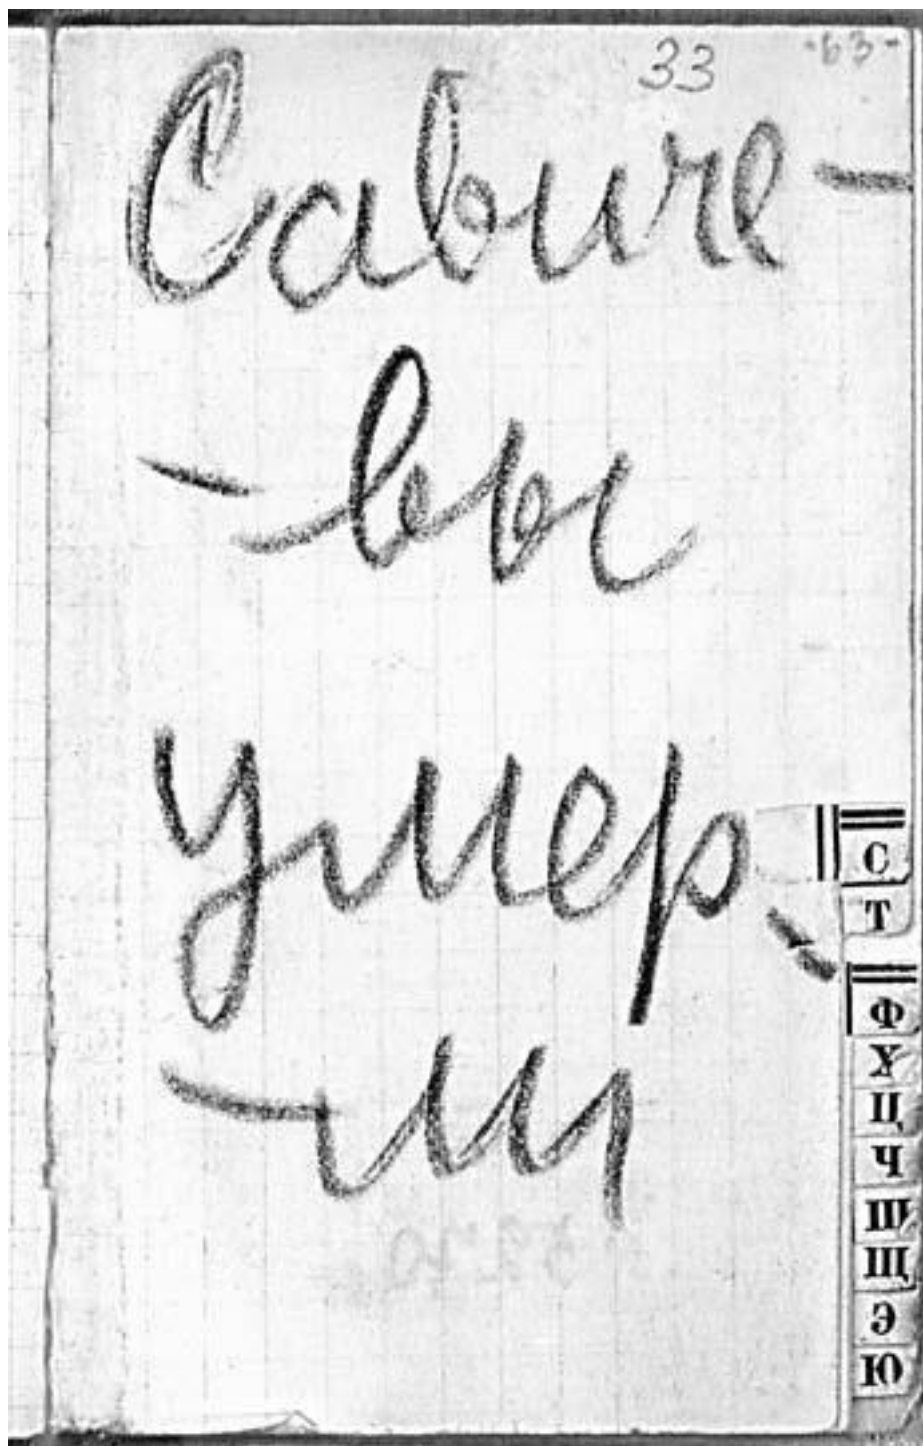 33 -63-
Савиче-
-вы
умер-
-ли
С
Т
Ф
Х
Ц
Ч
Ш
Щ
Э
Ю